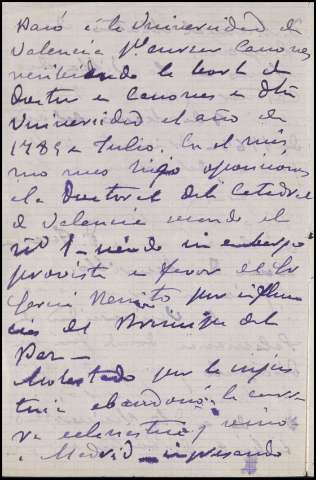 Pasó á la Universidad de
Valencia pª cursar Canones
recibiendo la borla de
Doctor en Canones en dha
Universidad el año de
1789 en Julio. En el mis
mo mes hizo oposiciones
a la Doctoral de la Catedral
de Valencia siendo el
nº 1 - siendo sin embargo
provista en favor del Sr
Garcia Benito por influen
cias del Principe de la
Paz —
Molestado por la injus
ticia abandonó la carre
ra eclesiastica y vino
a Madrid ingresando